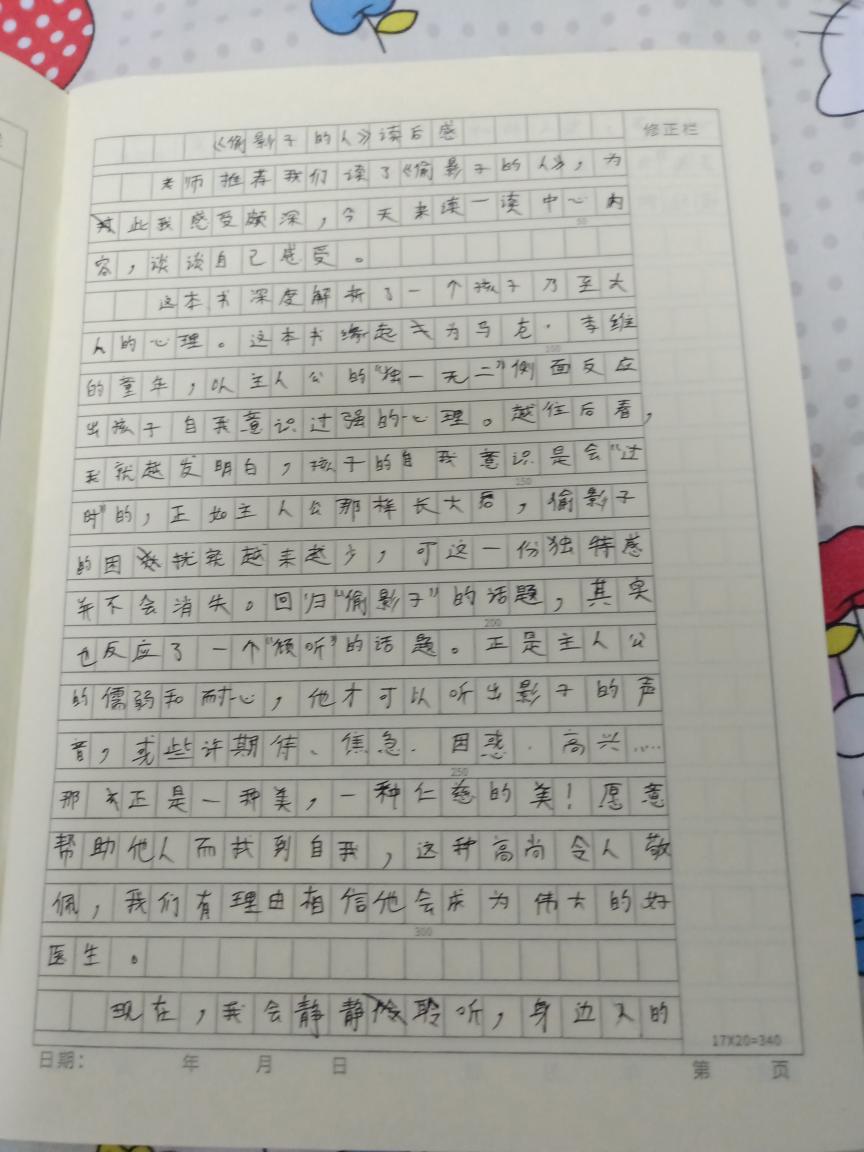 《偷影子的人》读后感
修正栏
老师推荐我们读了《偷影子的人》，为
此我感受颇深，今天来读一读中心内
50
容，谈谈自己感受。
这本书深度解析了一个孩子乃至大
人的心理。这本书缘起于为马克·李维
100
的童年，以主人公的“独一无二”侧面反应
出孩子自我意识过强的心理。越往后看，
我就越发明白，孩子的自我意识是会“过
150
时”的，正如主人公那样长大后，偷影子
的困扰就越来越少，可这一份独特感
并不会消失。回归“偷影子”的话题，其实
200
也反应了一个“倾听”的话题。正是主人公
的儒弱和耐心，他才可以听出影子的声
音，或些许期待、焦急、困惑、高兴……
250
那才正是一种美，一种仁慈的美！愿意
帮助他人而找到自我，这种高尚令人敬
佩，我们有理由相信他会成为伟大的好
300
医生。
现在，我会静静聆听，身边人的
17X20=340
日期： 年 月 日 第 页